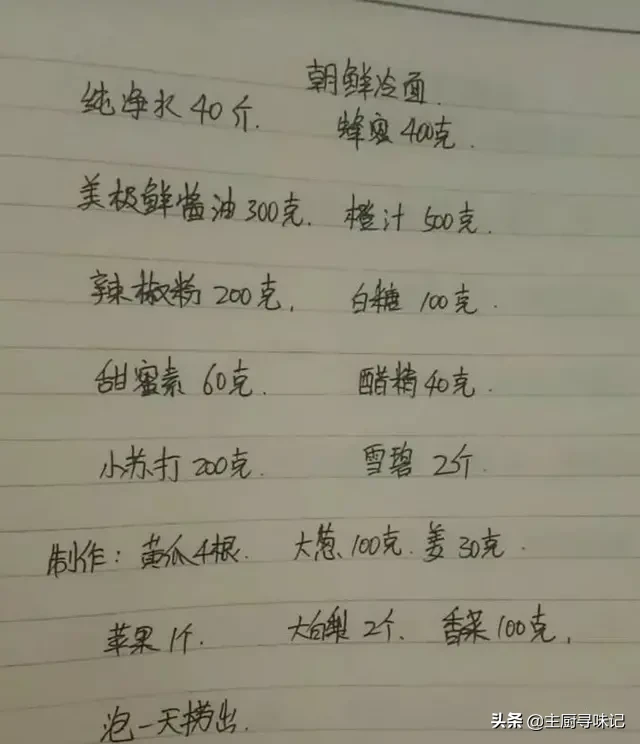 朝鲜冷面.
纯净水 40斤. 蜂蜜 400克.
美极鲜酱油300克. 橙汁 500克.
辣椒粉 200克, 白糖 100克.
甜蜜素 60克. 醋精40克.
小苏打 200克. 雪碧 2个.
制作: 黄瓜4根. 大葱100克. 姜30克.
苹果1个. 大白梨 2个. 香菜100克,
泡一天捞出.
头条 @主厨寻味记